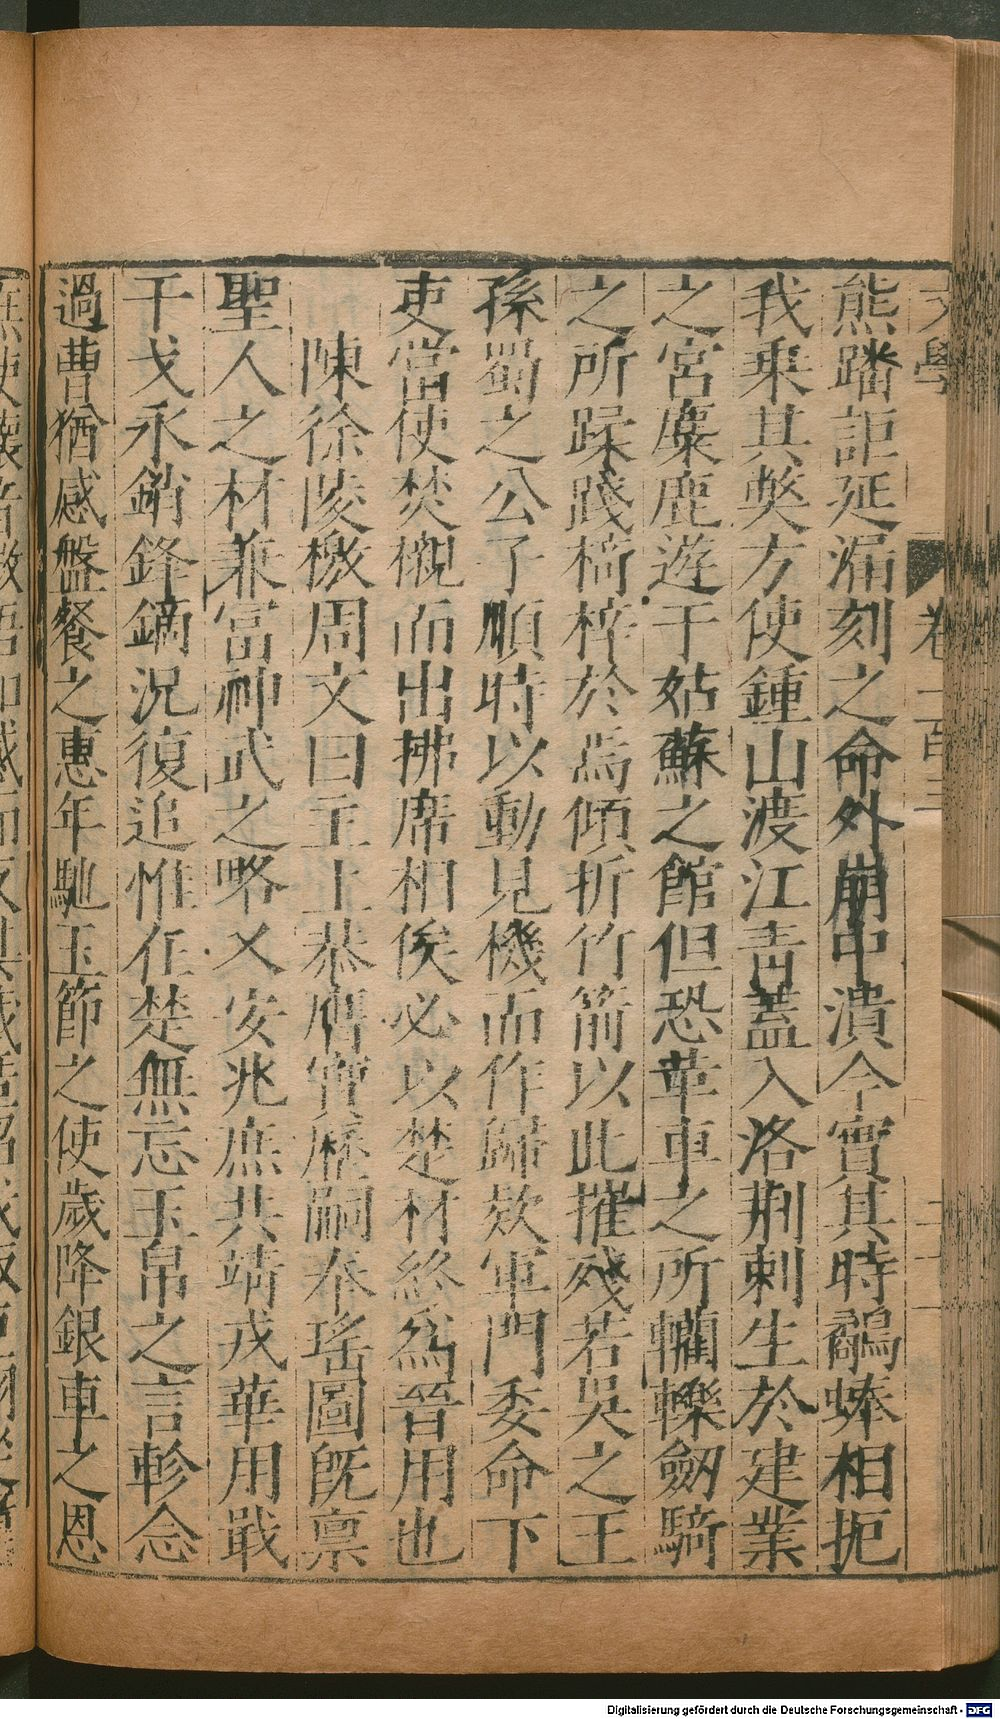 文學 卷一百三
熊蹯詎延漏刻之命外崩中潰今實其時鷸蜯相扼
我乗其弊方使鍾山渡江青蓋入洛荆棘生於建業
之宮麋鹿遊于姑蘇之館但恐革車之所轥轢劒騎
之所蹂踐椅梓於焉傾折竹箭以此摧殘若吳之王
孫蜀之公子順時以動見機而作歸欵軍門委命下
吏當使焚櫬而出拂席相俟必以楚材終爲晉用也
陳徐陵檄周文曰主上恭膺寶歷嗣奉瑤圖旣禀
聖人之材兼富神武之略乂安兆庶共靖戎華用戢
干戈永銷鋒鏑況復追惟在楚無忘玉帛之言軫念
過曹猶感盤餐之惠年馳玉節之使歲降銀車之恩
Digitalisierung gefördert durch die Deutsche Forschungsgemeinschaft - DFG